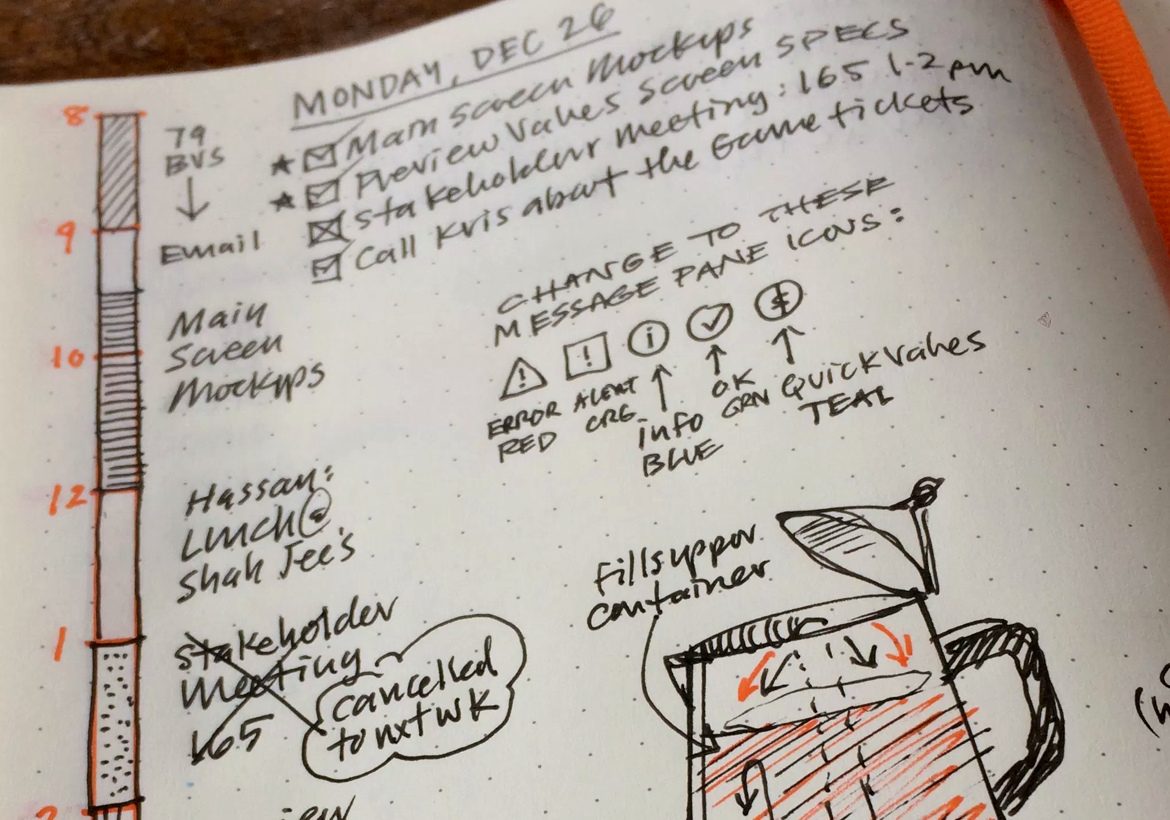 MONDAY, DEC 26
Main Screen Mockups
Preview Values Screen SPECS
Stakeholder Meeting: 165 1-2pm
Call Kris about the Game tickets
8
79
BVS
Email
9
Main
Screen
Mockups
10
CHANGE TO THESE
MESSAGE PANE ICONS:
! ! i
ERROR
RED
ALERT
ORG
info
BLUE
OK
GRN
Quick Values
TEAL
12
Hassan:
Lunch@
Shah Jee's
Fills upper
container
1
Stakeholder
Meeting
165
cancelled
to nxt wk